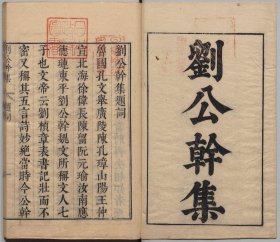 劉公幹集
劉公幹集題詞
魯國孔文舉廣陵陳孔璋山陽王仲
宣北海徐偉長陳留阮元瑜汝南應
德璉東平劉公幹魏文所稱文人七
子也文帝云劉楨章表書記壯而不
密又稱其五言詩妙絕當時今公幹
劉公幹集 題詞